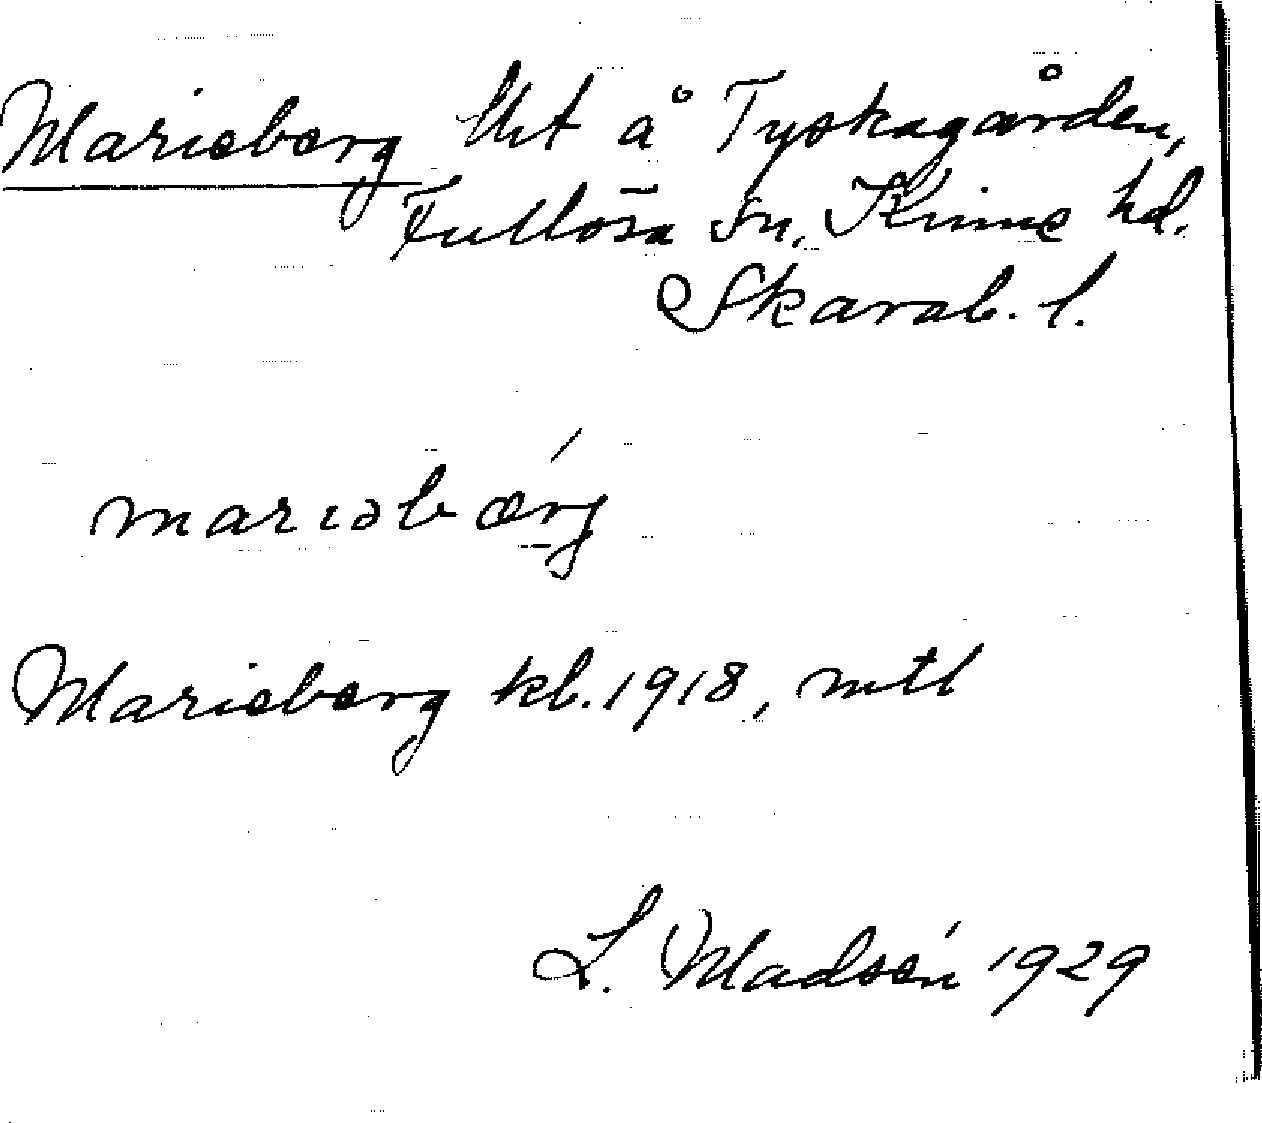 Marieberg lht å Tyskagården,
Fullösa sn, Kinne hd.
Skarab. l.
mariəbærj
Marieberg kb. 1918, mtl
L. Madsén 1929